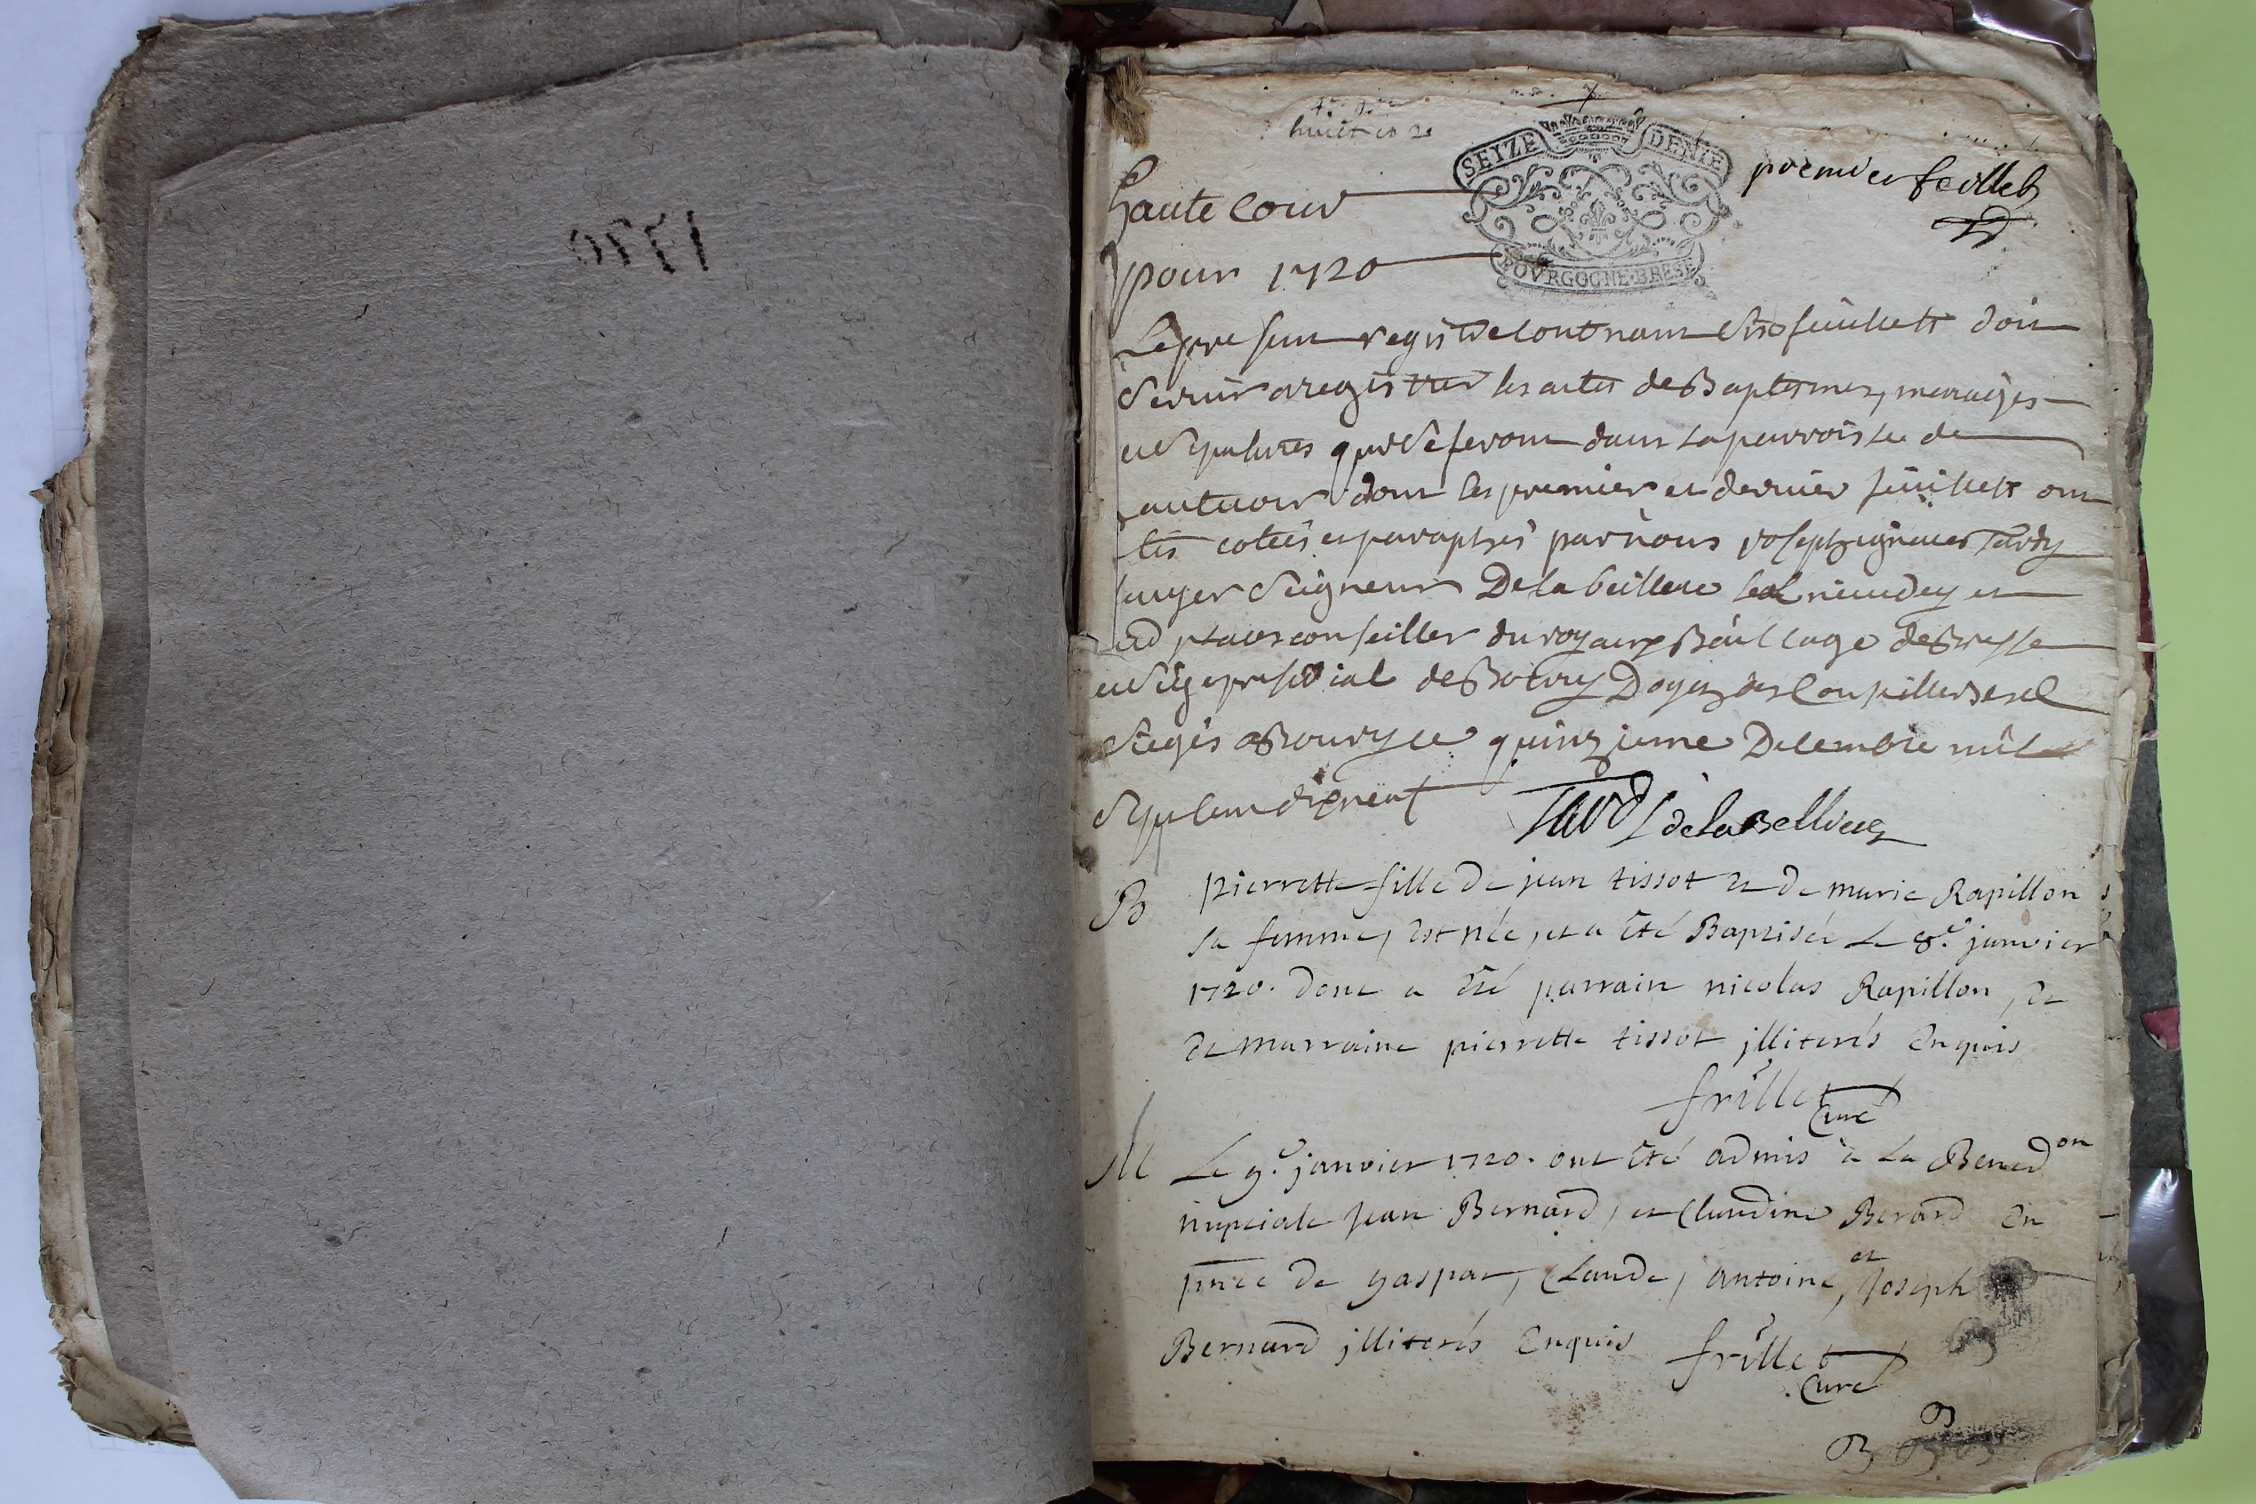 1770
huict
premier feillet
SEIZE DENIE
haute Cour
BOVRGOGNE·BRESSE
pour 1720
Le presen registre Contnant six feuillets doit
servir a registrer les actes de Baptesmes, mariages
et sepultures qui se feront dans la parroisse de
dont les premier et dernier feuillets ont
estés cotées et paraphés par nous Joseph ignace Tardy
escuyer seigneur De la
places conseiller du roy aux Bailliage de Bresse
et siege presidial de Bourg Doyen des Conseillers
sieges a Bourg ce quinzieme Decembre mil
sept cent dix neuf
Tardy de la Belliere
B
pierrette fille de jean tissot et de marie Rapillon
sa femme, est née, et a été Baptisée Le 8.e janvier
1720. dont a été parrain nicolas Rapillon, et
de marraine pierrette tissot illiterés Enquis
frillet
Curé
M
Le 9.e janvier 1720. ont été admis à La Bened.on
nupciale jean Bernard, et Claudine Berard En
pnce de gaspar, Claude, antoine, et joseph
Bernard illiterés Enquis
frillet
Curé